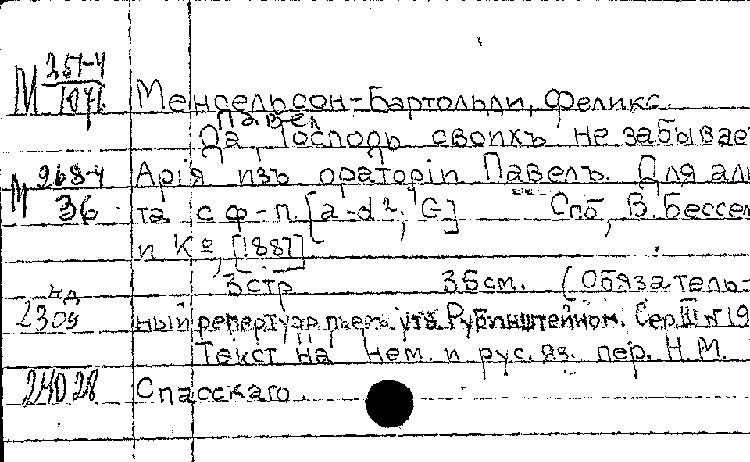 М 351-4/1071
Менсельсон-Бартольди, Феликс.
Павел
Да, Господь своихъ не забывае
М 968-4/36
Арія изъ ораторіи Павелъ. Для аль
та с ф-п. [a-d²; G] Спб, В. Бессел
и Кº, [1887]
3 стр 35 см. (Обязатель-
нд 2309
ный репертуар пьес, утв. Рубинштейном. Сер III № 19
Текст на нем. и рус. яз. пер. Н.М.
24028
Спасскаго.